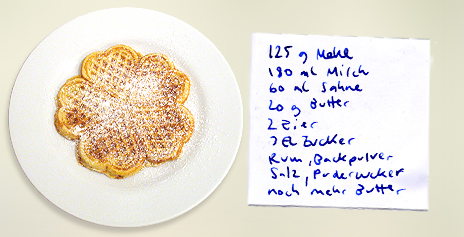 125 g Mehl
180 ml Milch
60 ml Sahne
20 g Butter
2 Eier
2 EL Zucker
Rum, Backpulver
Salz, Puderzucker
noch mehr Butter